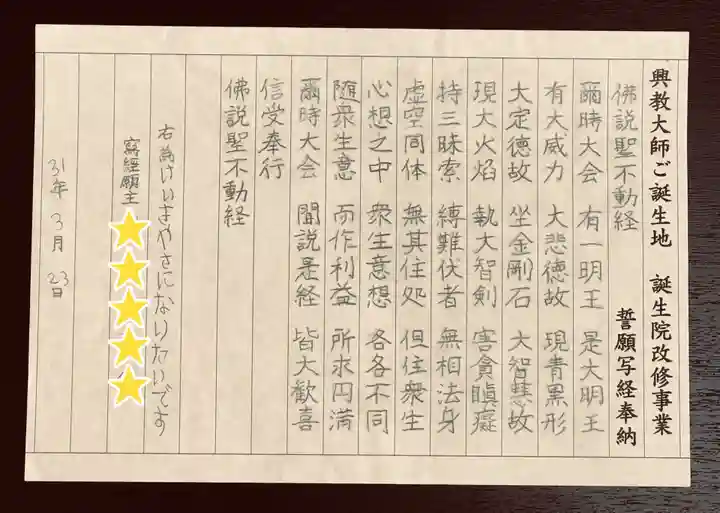 興教大師ご誕生地 誕生院改修事業
誓願写経奉納
佛説聖不動経
爾時大会 有一明王 是大明王
有大威力 大悲徳故 現青黒形
大定徳故 坐金剛石 大智慧故
現大火焔 執大智剣 害貪瞋癡
持三昧索 縛難伏者 無相法身
虚空同体 無其住処 但住衆生
心想之中 衆生意想 各各不同
随衆生意 而作利益 所求円満
爾時大会 聞説是経 皆大歓喜
信受奉行
佛説聖不動経
右為けいさやさになりたいです
写経願主
31年3月23日